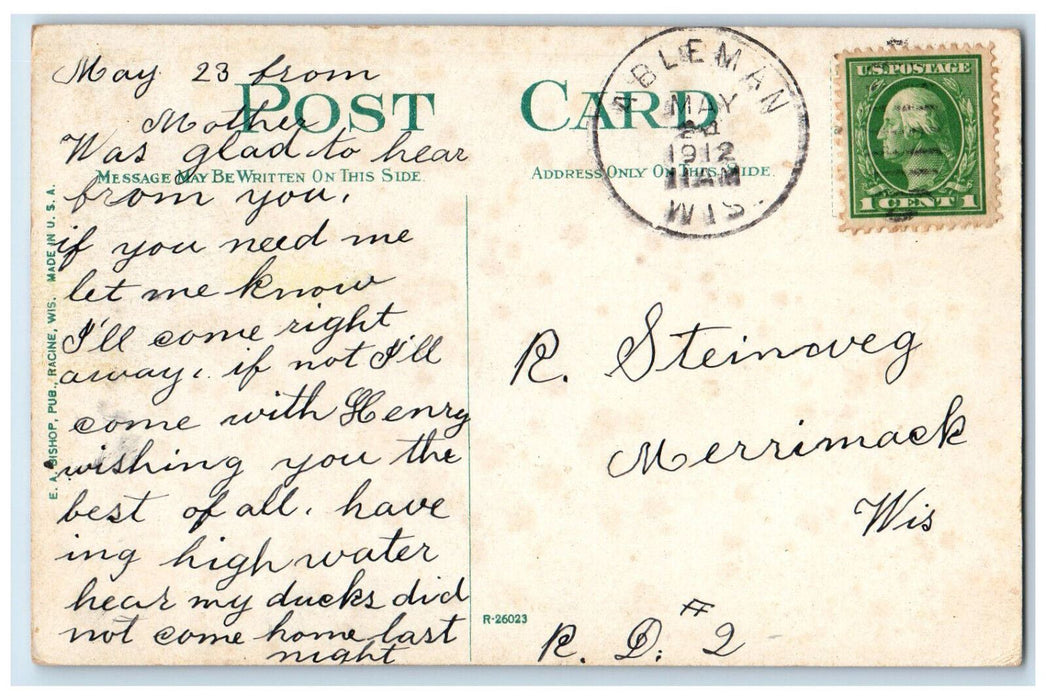 May 23 from
Mother
POST CARD
Was glad to hear
MESSAGE MAY BE WRITTEN ON THIS SIDE.
ADDRESS ONLY ON THIS SIDE.
from you.
if you need me
let me know
I'll come right
away, if not I'll
come with Henry
wishing you the
best of all. have
ing high water
hear my ducks did
not come home last
night
E. A. BISHOP, PUB., RACINE, WIS. MADE IN U. S. A.
R-26023
ABLEMAN
MAY
1912
11AM
WIS.
U.S. POSTAGE
1 CENT 1
R. Steinweg
Merrimack
Wis
R. D. # 2